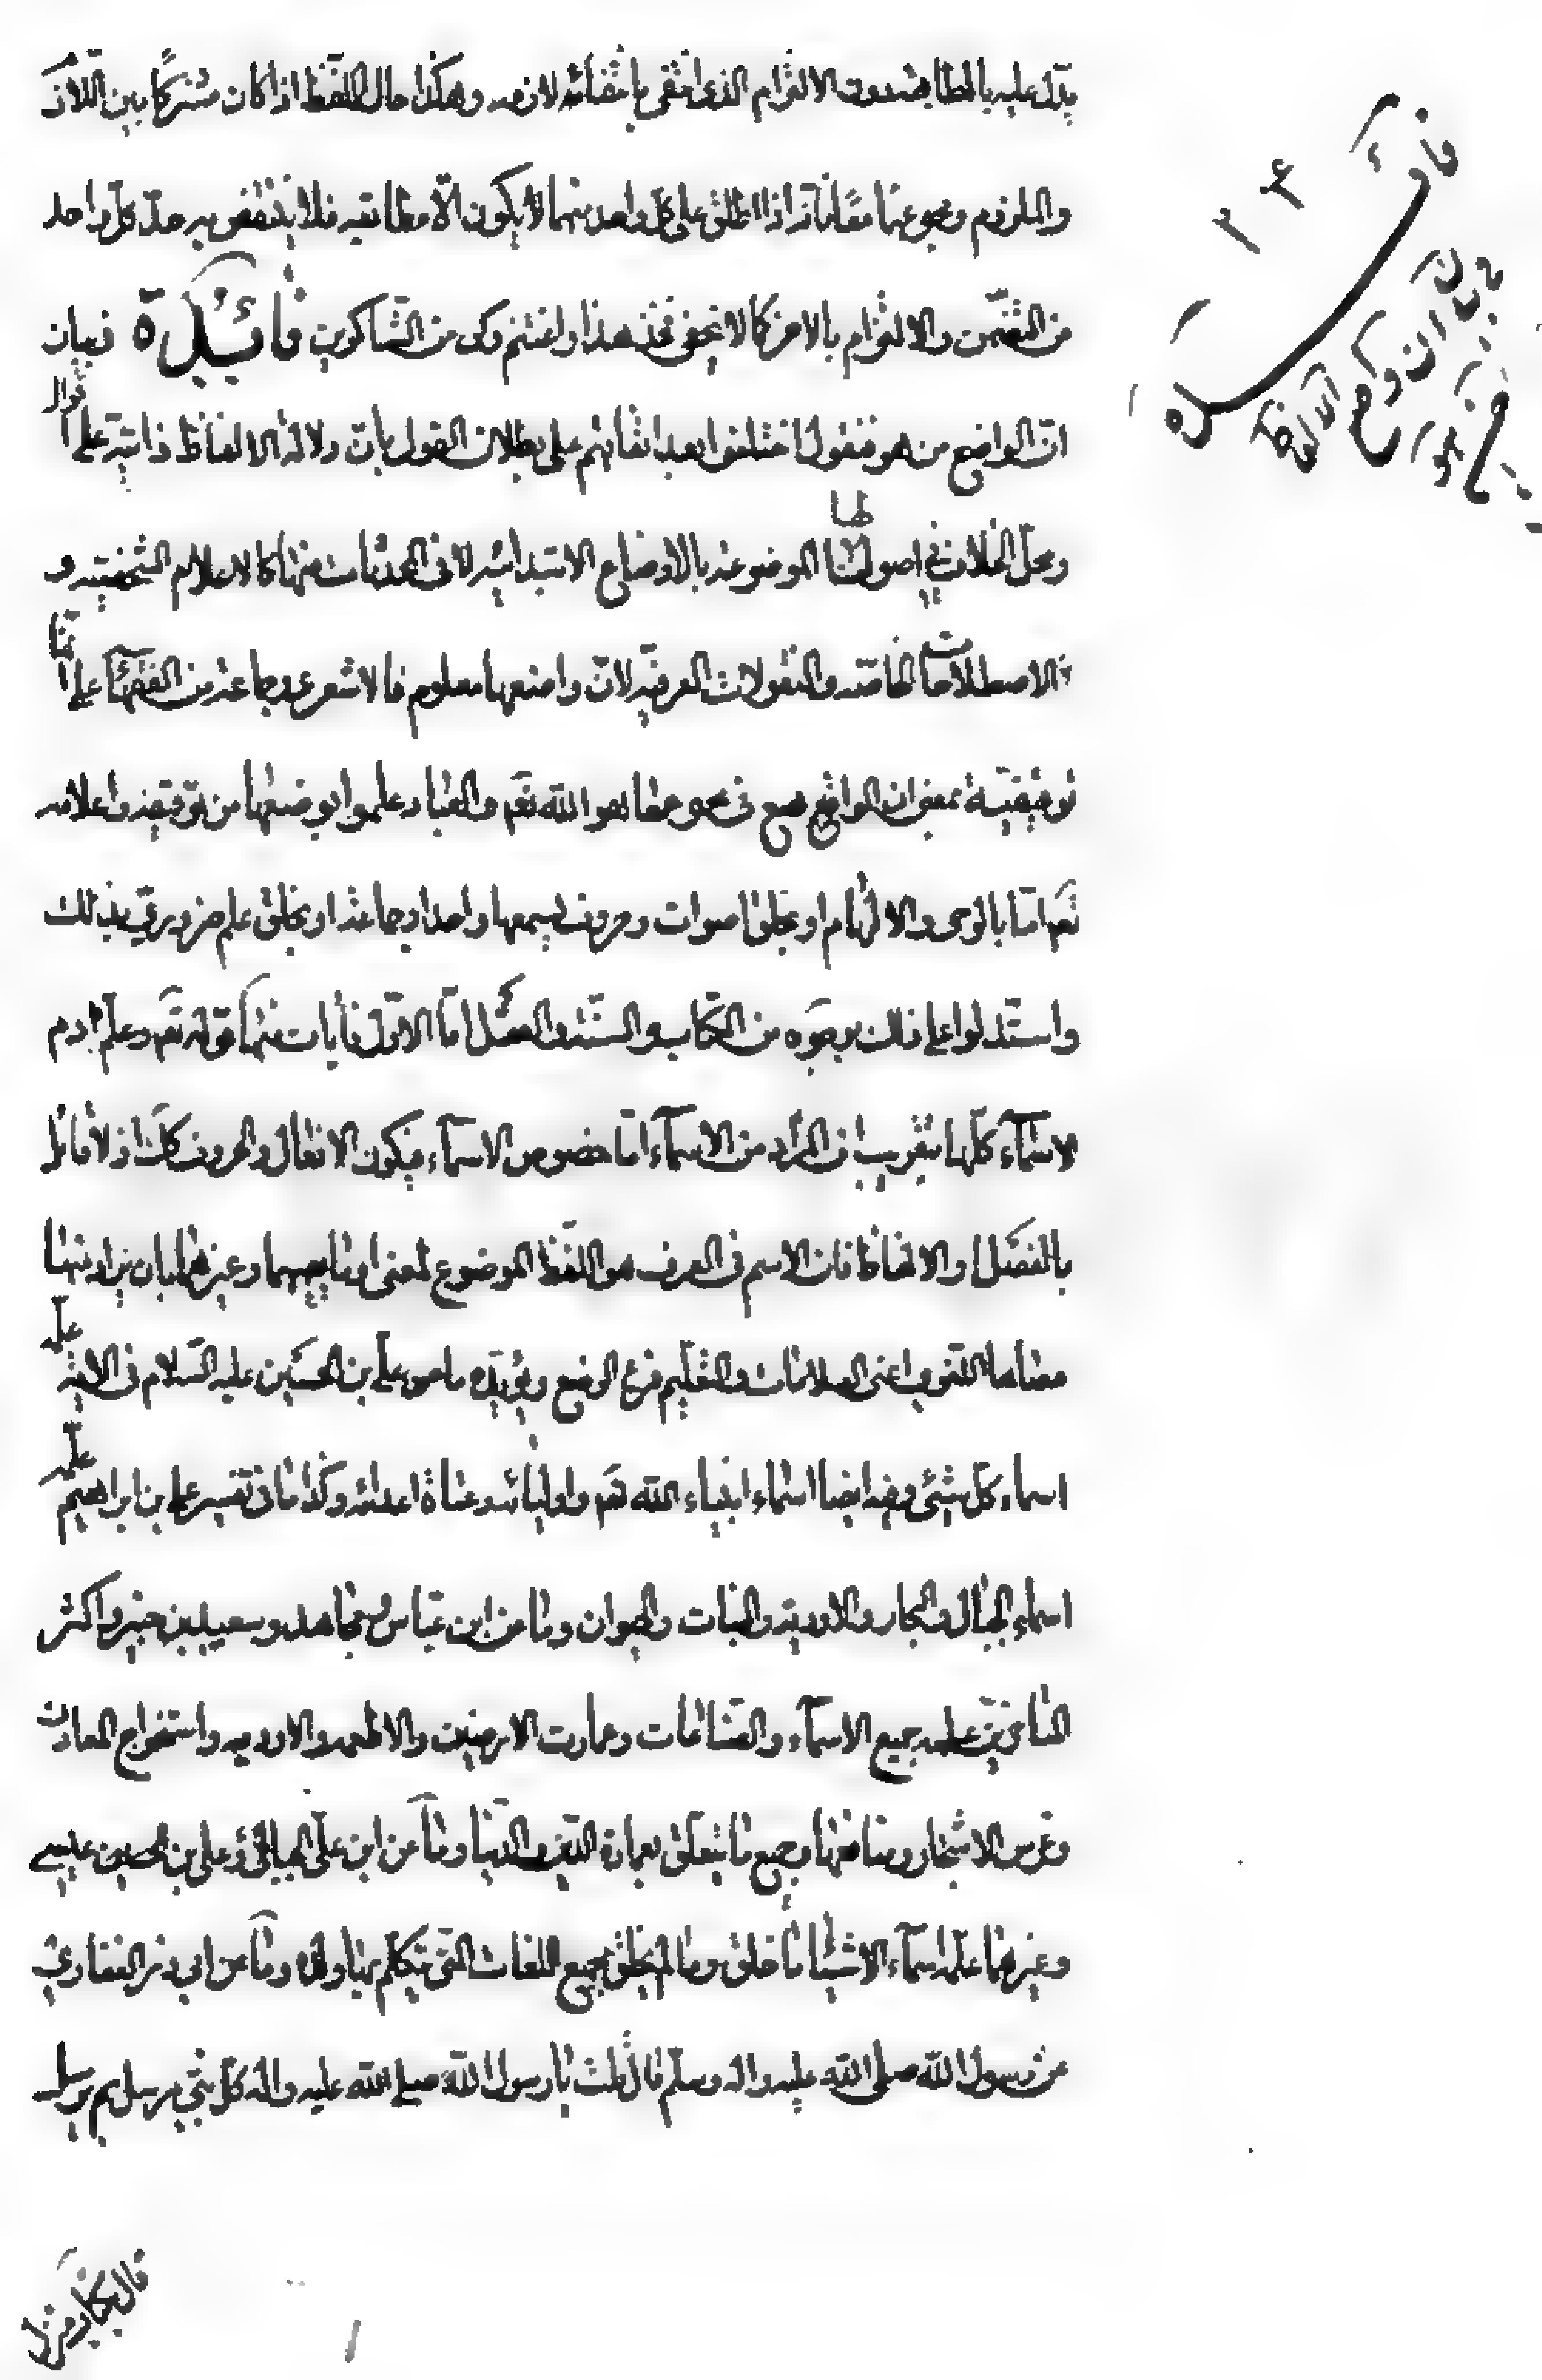 يدل عليه بالمطابقة دون الالتزام الذى انتفى بانتفائه لازمه وهكذا حال اللفظ اذا كان مشتركا بين اللازم
والملزوم ومجموعهما معًا فانه اذا اطلق على كل واحد منهما لا يكون الّا مطابقيه فلا ينتقض به حدّ كل واحد
من التضمن والالتزام بالاخر كما لا يخفى فخذ هذا واغتنم وكن من الشاكرين فائدة في بيان
انّ الواضع من هو فنقول اختلفوا بعد اتفاقهم على بطلان القول بان دلالة الالفاظ ذاتية على اقوال
ومحلّ الخلاف في اصولها الموضوعة بالاوضاع الابتدائيه لا فى المحدثات منها كالاعلام الشخصيه و
الاصطلاحات الخاصه والمنقولات العرفيه لانّ واضعها معلوم فالاشعرى وجماعة من الفقهآء على انّها
توقيفيّة بمعنى ان الواضع مع فى نحو عطا هو الله تعم والعباد علموا بوضعها من توقيفه واعلامه
تعم امّا بالوحى والالهام او بخلق اصوات وحروف يسمعها واحد او جماعة او بخلق علم ضرورىّ بذلك
واستدلوا على ذلك بوجوه من الكتاب والسنّة والعقل امّا الاوّل فايات منها قوله تعم وعلّم ادم
الاسمآء كلّها بتقريب ان المراد من الاسمآء امّا خصوص الاسمآء فيكون الافعال والحروف كك اذ لا قائل
بالفصل او الالفاظ فان الاسم فى العرف هو اللفظ الموضوع لمعنى او ما يعمهما وغيرهما بان يراد منها
معناها اللغوى اعنى العلامات والتعليم فرع الوضع ويؤيّده ما عن على بن الحسين عليه السّلام فى الاية علّمه
اسماء كلّ شىء وفيه ايضا اسماء انبياء الله تعم واوليائه وعتاة اعدائه وكذا ما فى تفسير على بن ابراهيم علّمه
اسماء الجبال والبحار والاودية والنبات والحيوان وما عن ابن عبّاس ومجاهد وسعيد بن جبير واكثر
المتأخرين علمه جميع الاسمآء والصناعات وعمارت الارضين والاطعمه والادويه واستخراج المعادن
وغرس الاشجار ومنافعها وجميع ما يتعلق بعمارة الدّين والدّنيا وما عن ابى علىّ الجبائى وعلى بن عيسى
وغيرهما علّمه اسماء الاشيا ما خلق وما لم يخلق بجميع اللغات التى يتكلّم بها ولده وما عن ابى ذر الغفارىّ
عن رسول الله صلى الله عليه واله وسلّم قال قلت يا رسول الله صلى الله عليه واله كلّ نبىّ مرسل بم يرسل
قال بكتاب منزل
فائدة
۳۴